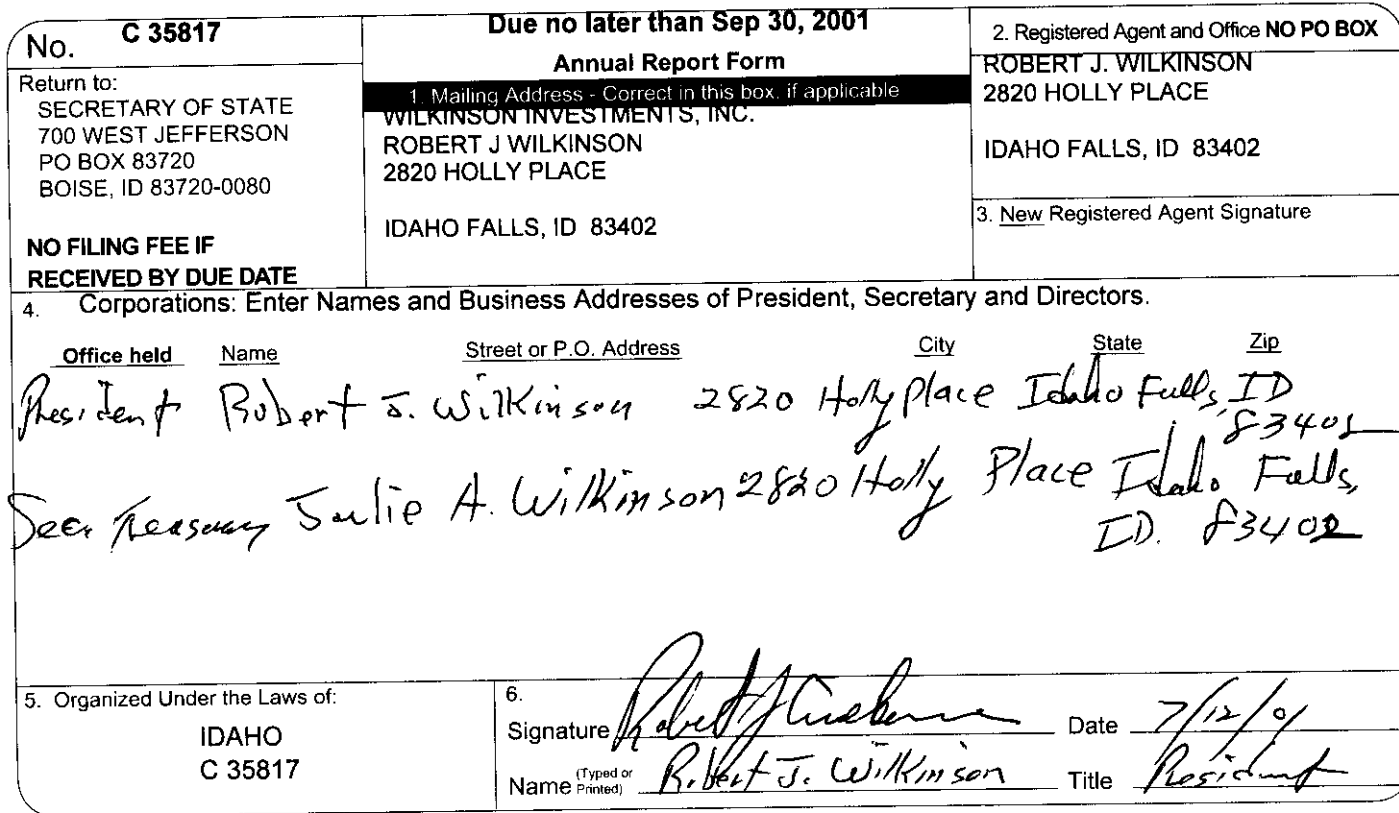 No. C 35817
Return to:
SECRETARY OF STATE
700 WEST JEFFERSON
PO BOX 83720
BOISE, ID 83720-0080
NO FILING FEE IF
RECEIVED BY DUE DATE
Due no later than Sep 30, 2001
Annual Report Form
1. Mailing Address - Correct in this box, if applicable
WILKINSON INVESTMENTS, INC.
ROBERT J WILKINSON
2820 HOLLY PLACE
IDAHO FALLS, ID 83402
2. Registered Agent and Office NO PO BOX
ROBERT J. WILKINSON
2820 HOLLY PLACE
IDAHO FALLS, ID 83402
3. New Registered Agent Signature
4. Corporations: Enter Names and Business Addresses of President, Secretary and Directors.
Office held Name Street or P.O. Address City State Zip
President Robert J. Wilkinson 2820 Holly Place Idaho Falls, ID
Julie A. Wilkinson 2820 Holly Place Idaho Falls,
ID. 83402
5. Organized Under the Laws of:
IDAHO
C 35817
6.
Signature Date 7/12/01
Name (Typed or Printed) Robert J. Wilkinson Title President